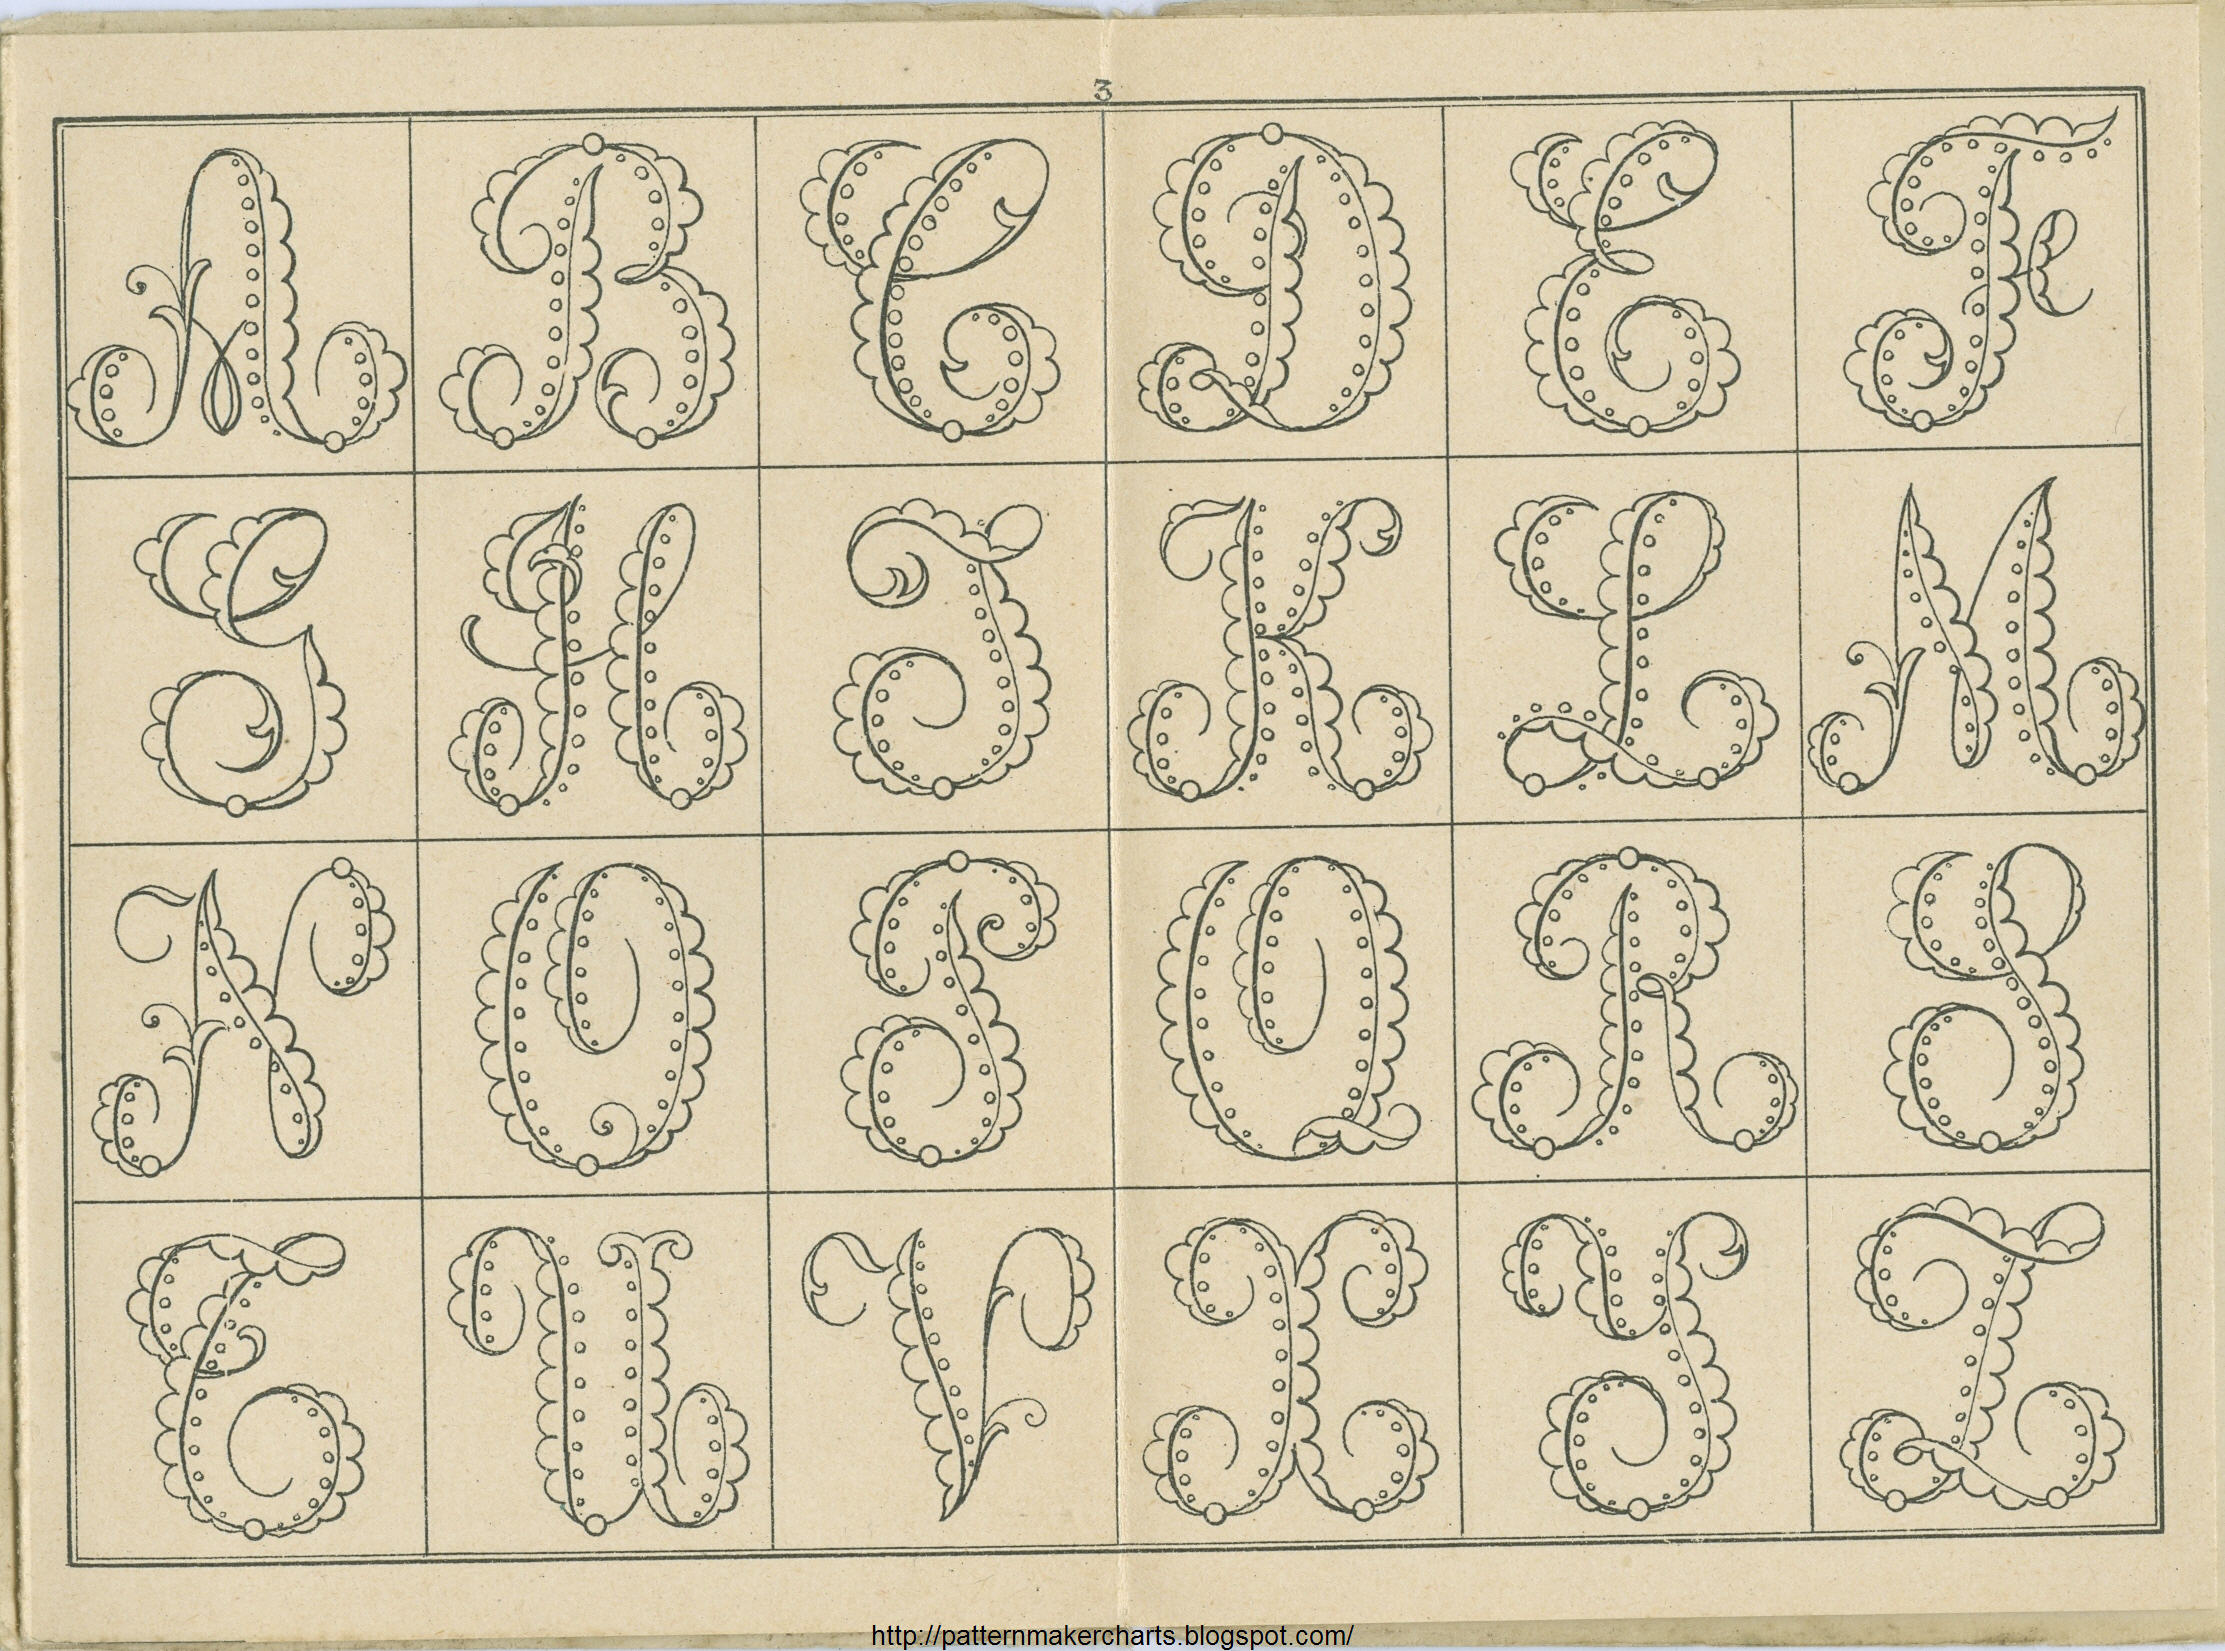 3
A B C D E F
G H I K L M
N O P Q R S
T U V X Y Z
http://patternmakercharts.blogspot.com/